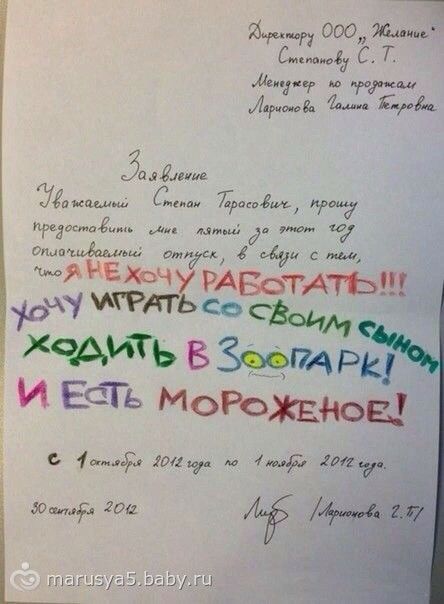 Директору ООО „Желание"
Степанову С. Т.
Менеджер по продажам
Ларионова Галина Петровна
Заявление
Уважаемый Степан Тарасович, прошу
предоставить мне пятый за этот год
оплачиваемый отпуск, в связи с тем,
что Я НЕ ХОЧУ РАБОТАТЬ!!!
ХОЧУ ИГРАТЬ СО СВОИМ СЫНОМ
ХОДИТЬ В ЗООПАРК!
И ЕСТЬ МОРОЖЕНОЕ!
с 1 октября 2012 года по 1 ноября 2012 года.
30 сентября 2012 /Ларионова Г.П/
marusya5.baby.ru